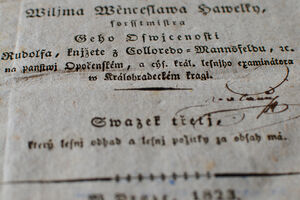 Wiljma Wěnceslawa Hawelky,
forstmistra
Geho Oswjcenosti
Rudolfa, knjžete z Colloredo-Mannsfeldu, ꝛc.
na panstwj Opočenském, a cýs. král. lesnjho examinátora
w Králohradeckém kragi.
Swazek třetj,
který lesnj odhad a lesnj požitky za obsah má.
W Praze, 1823.